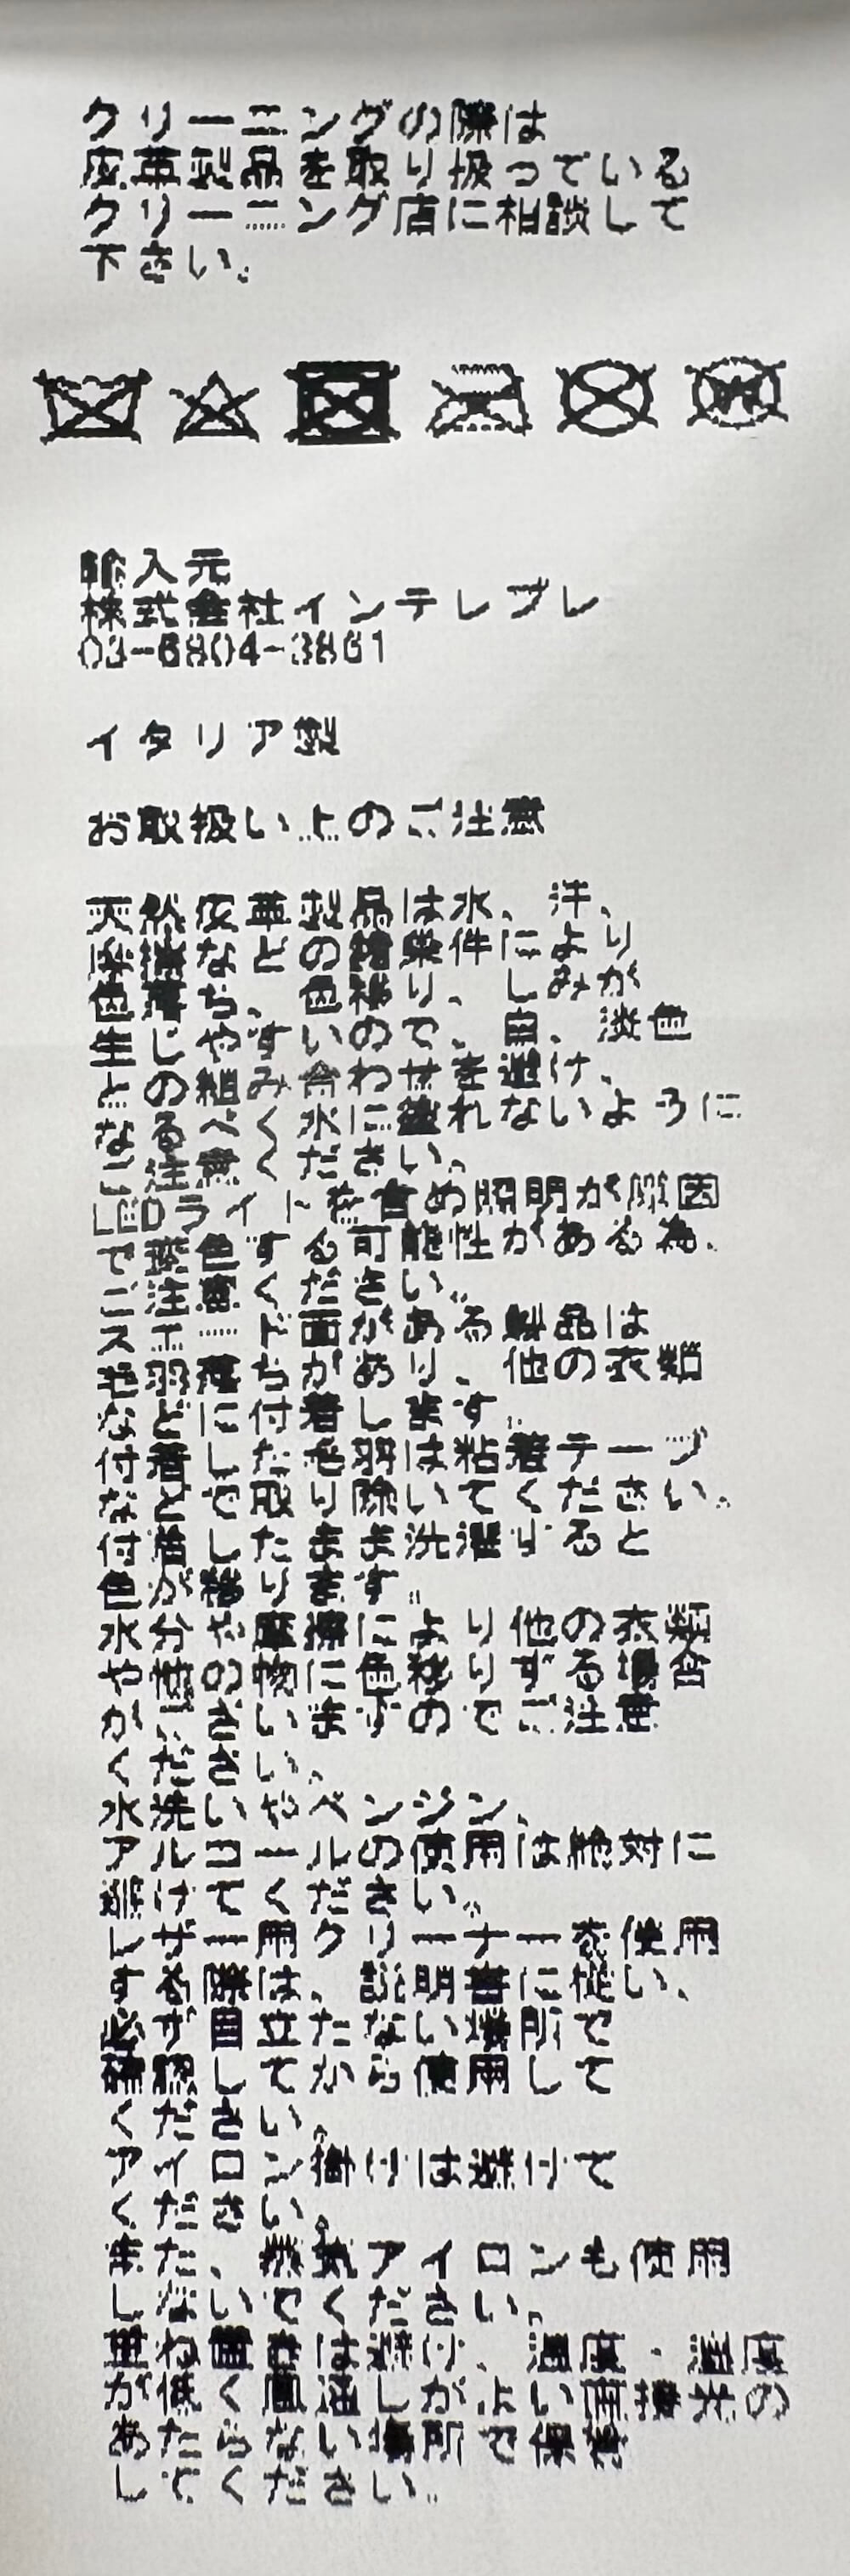 クリーニングの際は
皮革製品を取り扱っている
クリーニング店に相談して
下さい。
輸入元
株式会社インテレプレ
03-6804-3861
イタリア製
お取扱い上のご注意
天然皮革製品は水、汗、
摩擦などの諸条件により
色落ち、色移り、しみが
生じやすいので、白、淡色
との組み合わせを避け、
なるべく水に濡れないように
ご注意ください。
LEDライトを含め照明が原因
で変色する可能性がある為、
ご注意ください。
スエード面がある製品は
毛羽落ちがあり、他の衣類
などに付着します。
付着した毛羽は粘着テープ
などで取り除いてください。
付着したまま洗濯すると
色が移ります。
水分や摩擦により他の衣類
や他の物に色移りする場合
がございますのでご注意
ください。
水洗いやベンジン、
アルコールの使用は絶対に
避けてください。
レザー用クリーナーを使用
する際は、説明書に従い、
必ず目立たない場所で
確認してから使用して
ください。
アイロン掛けは避けて
ください。
また、蒸気アイロンも使用
しないでください。
重ね置きは避け、温度・湿度
が低く風通しがよい直接光の
あたらない場所で保存
してください。